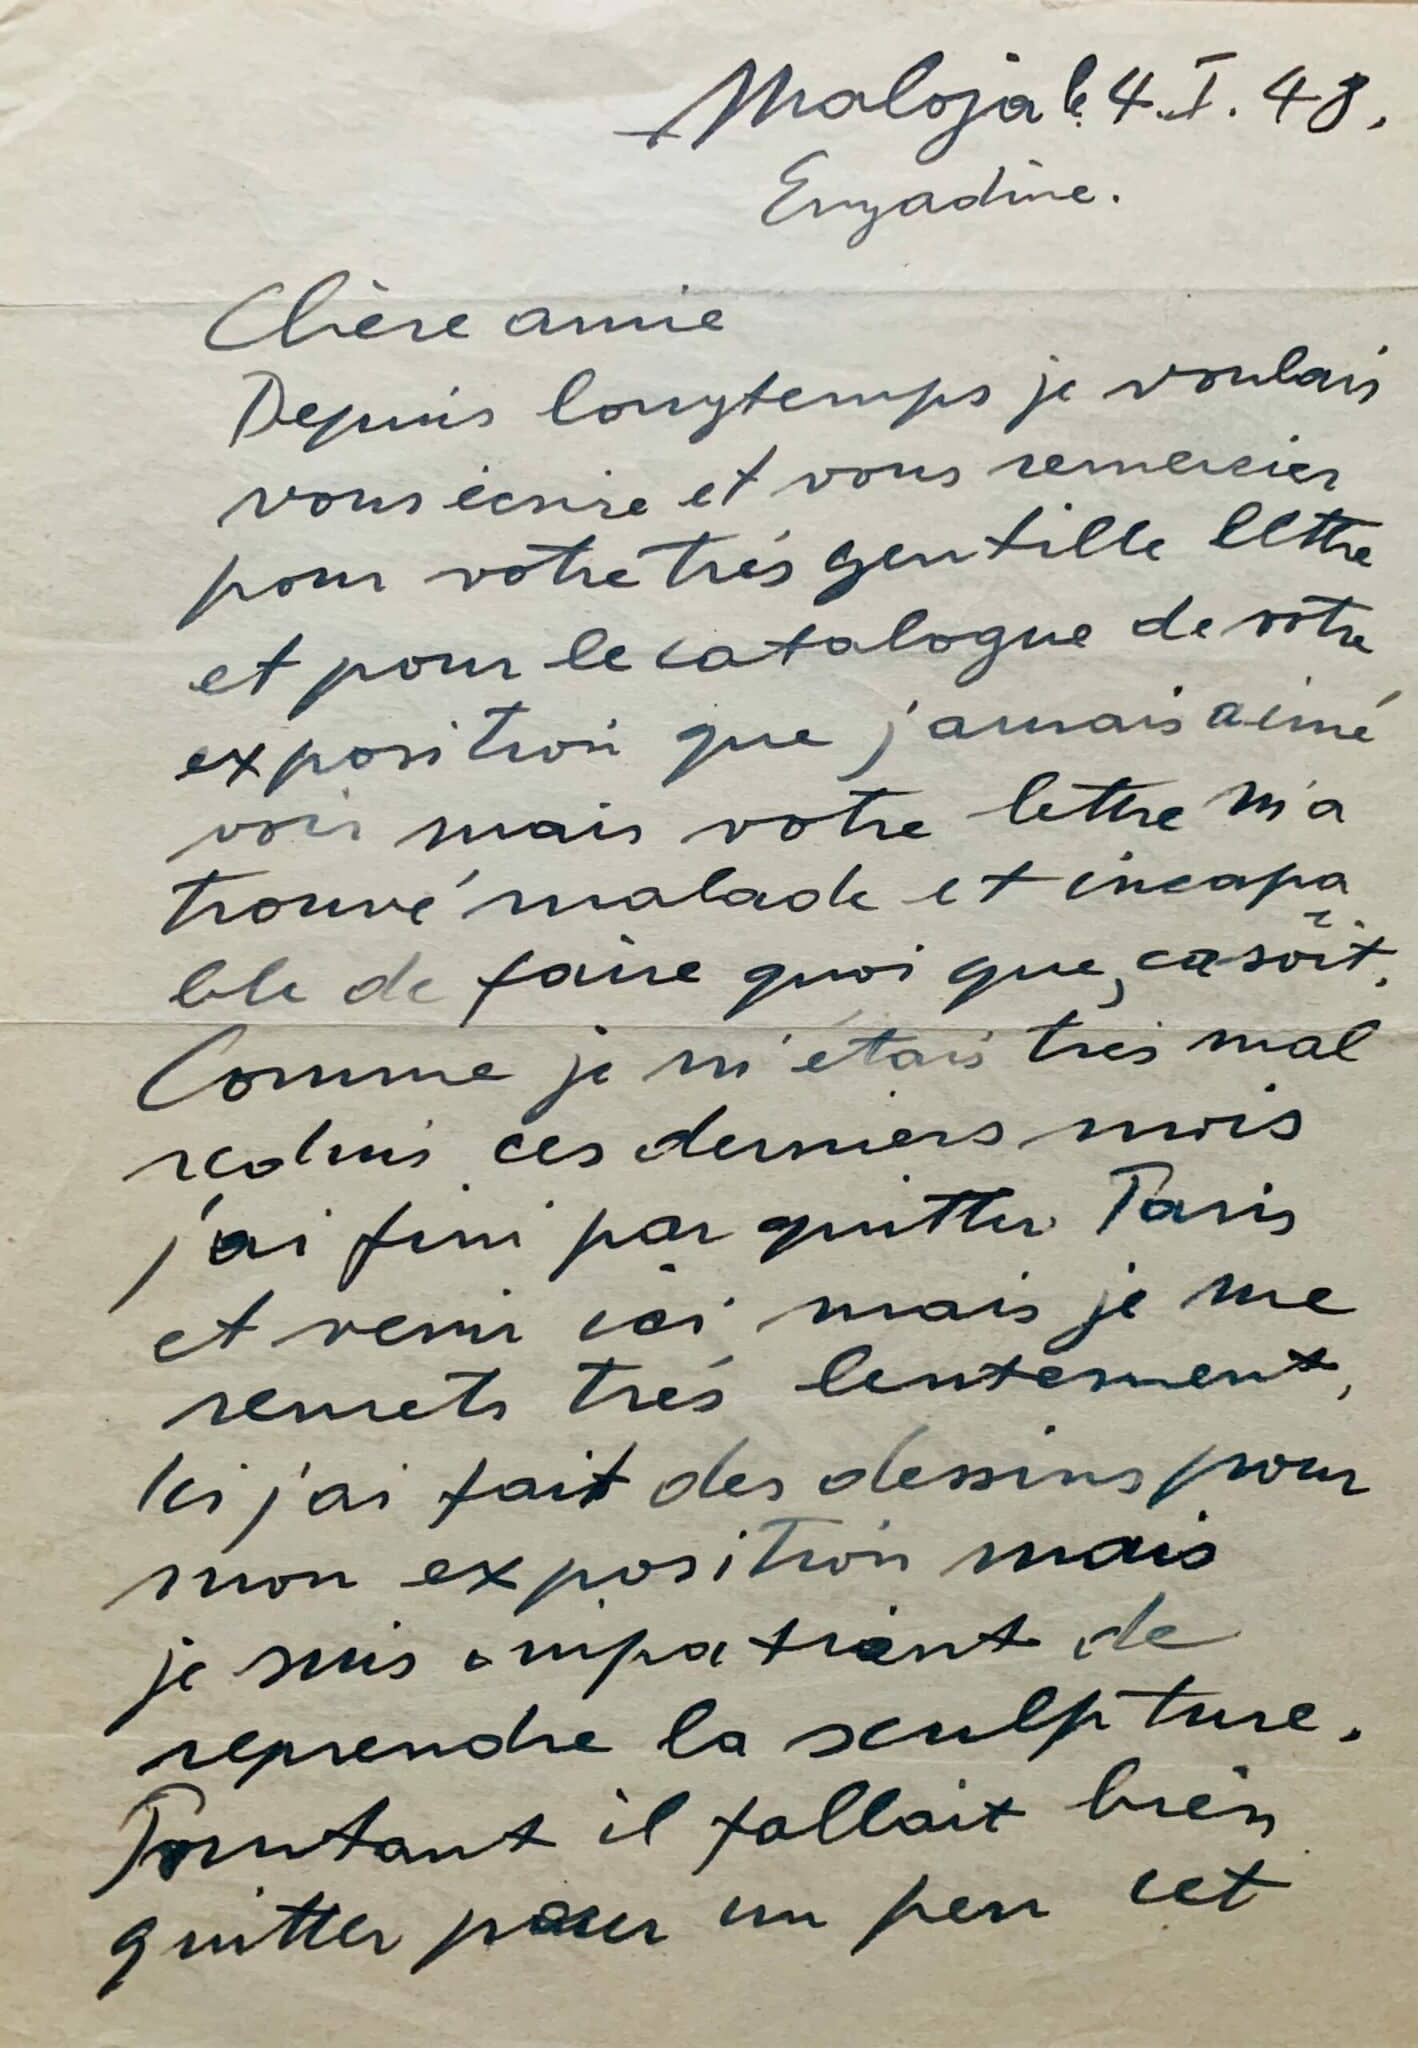 Maloja le 4.I.48.
Engadine.
Chère amie
Depuis longtemps je voulais
vous écrire et vous remercier
pour votre trés gentille lettre
et pour le catalogue de votre
exposition que j'amais aimé
voir mais votre lettre m'a
trouvé malade et incapa
ble de faire quoi que, ça soit.
Comme je m'étais trés mal
reduis ces derniers mois
j'ai fini par quitter Paris
et venir ici mais je me
remets trés lentement,
Ici j'ai fait des dessins pour
mon exposition mais
je suis impatient de
reprendre la sculpture.
Pourtant il fallait bien
quitter pour un peu cet